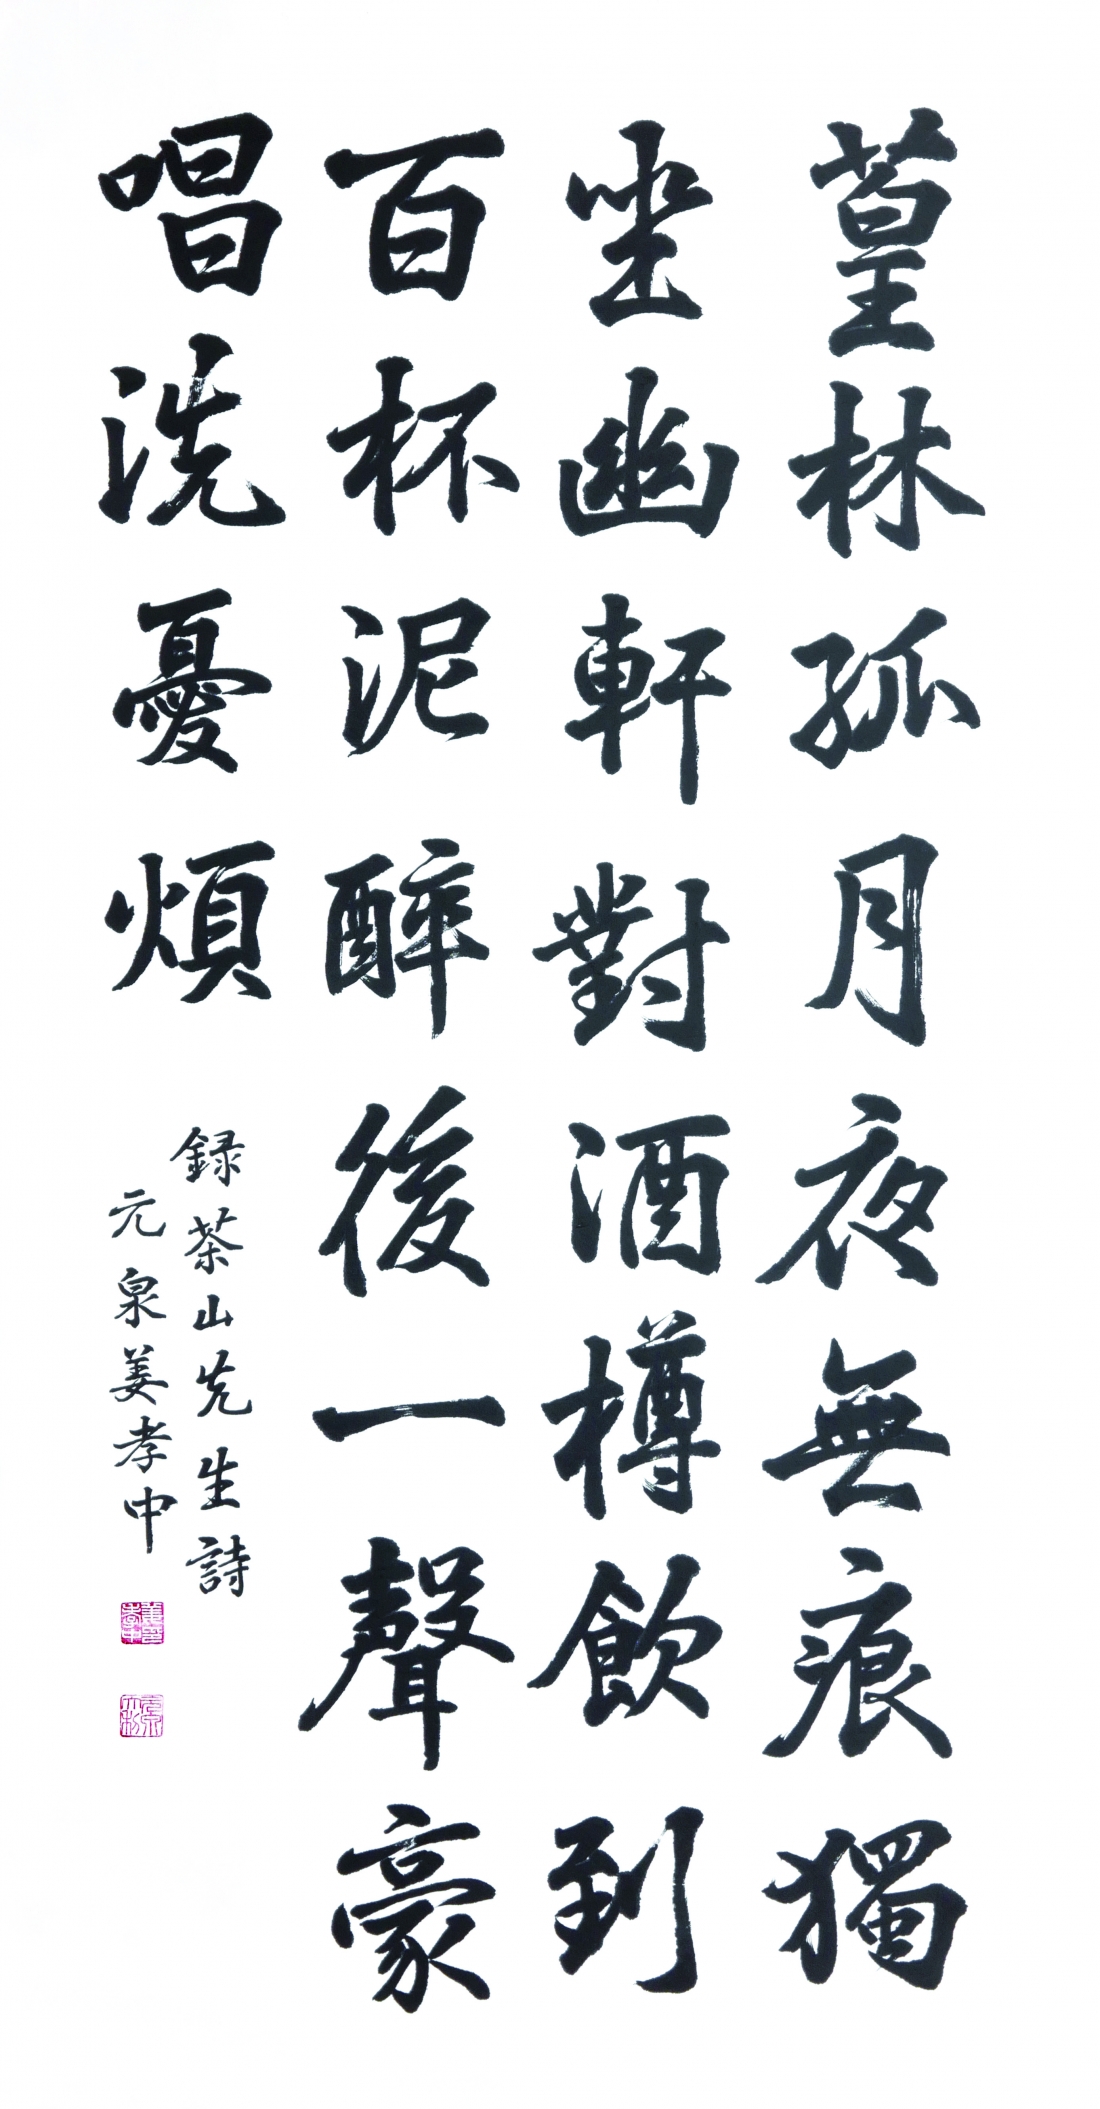 篁林孤月夜無痕獨
坐幽軒對酒樽飲到
百杯泥醉後一聲豪
唱洗憂煩
録茶山先生詩
元泉姜孝中